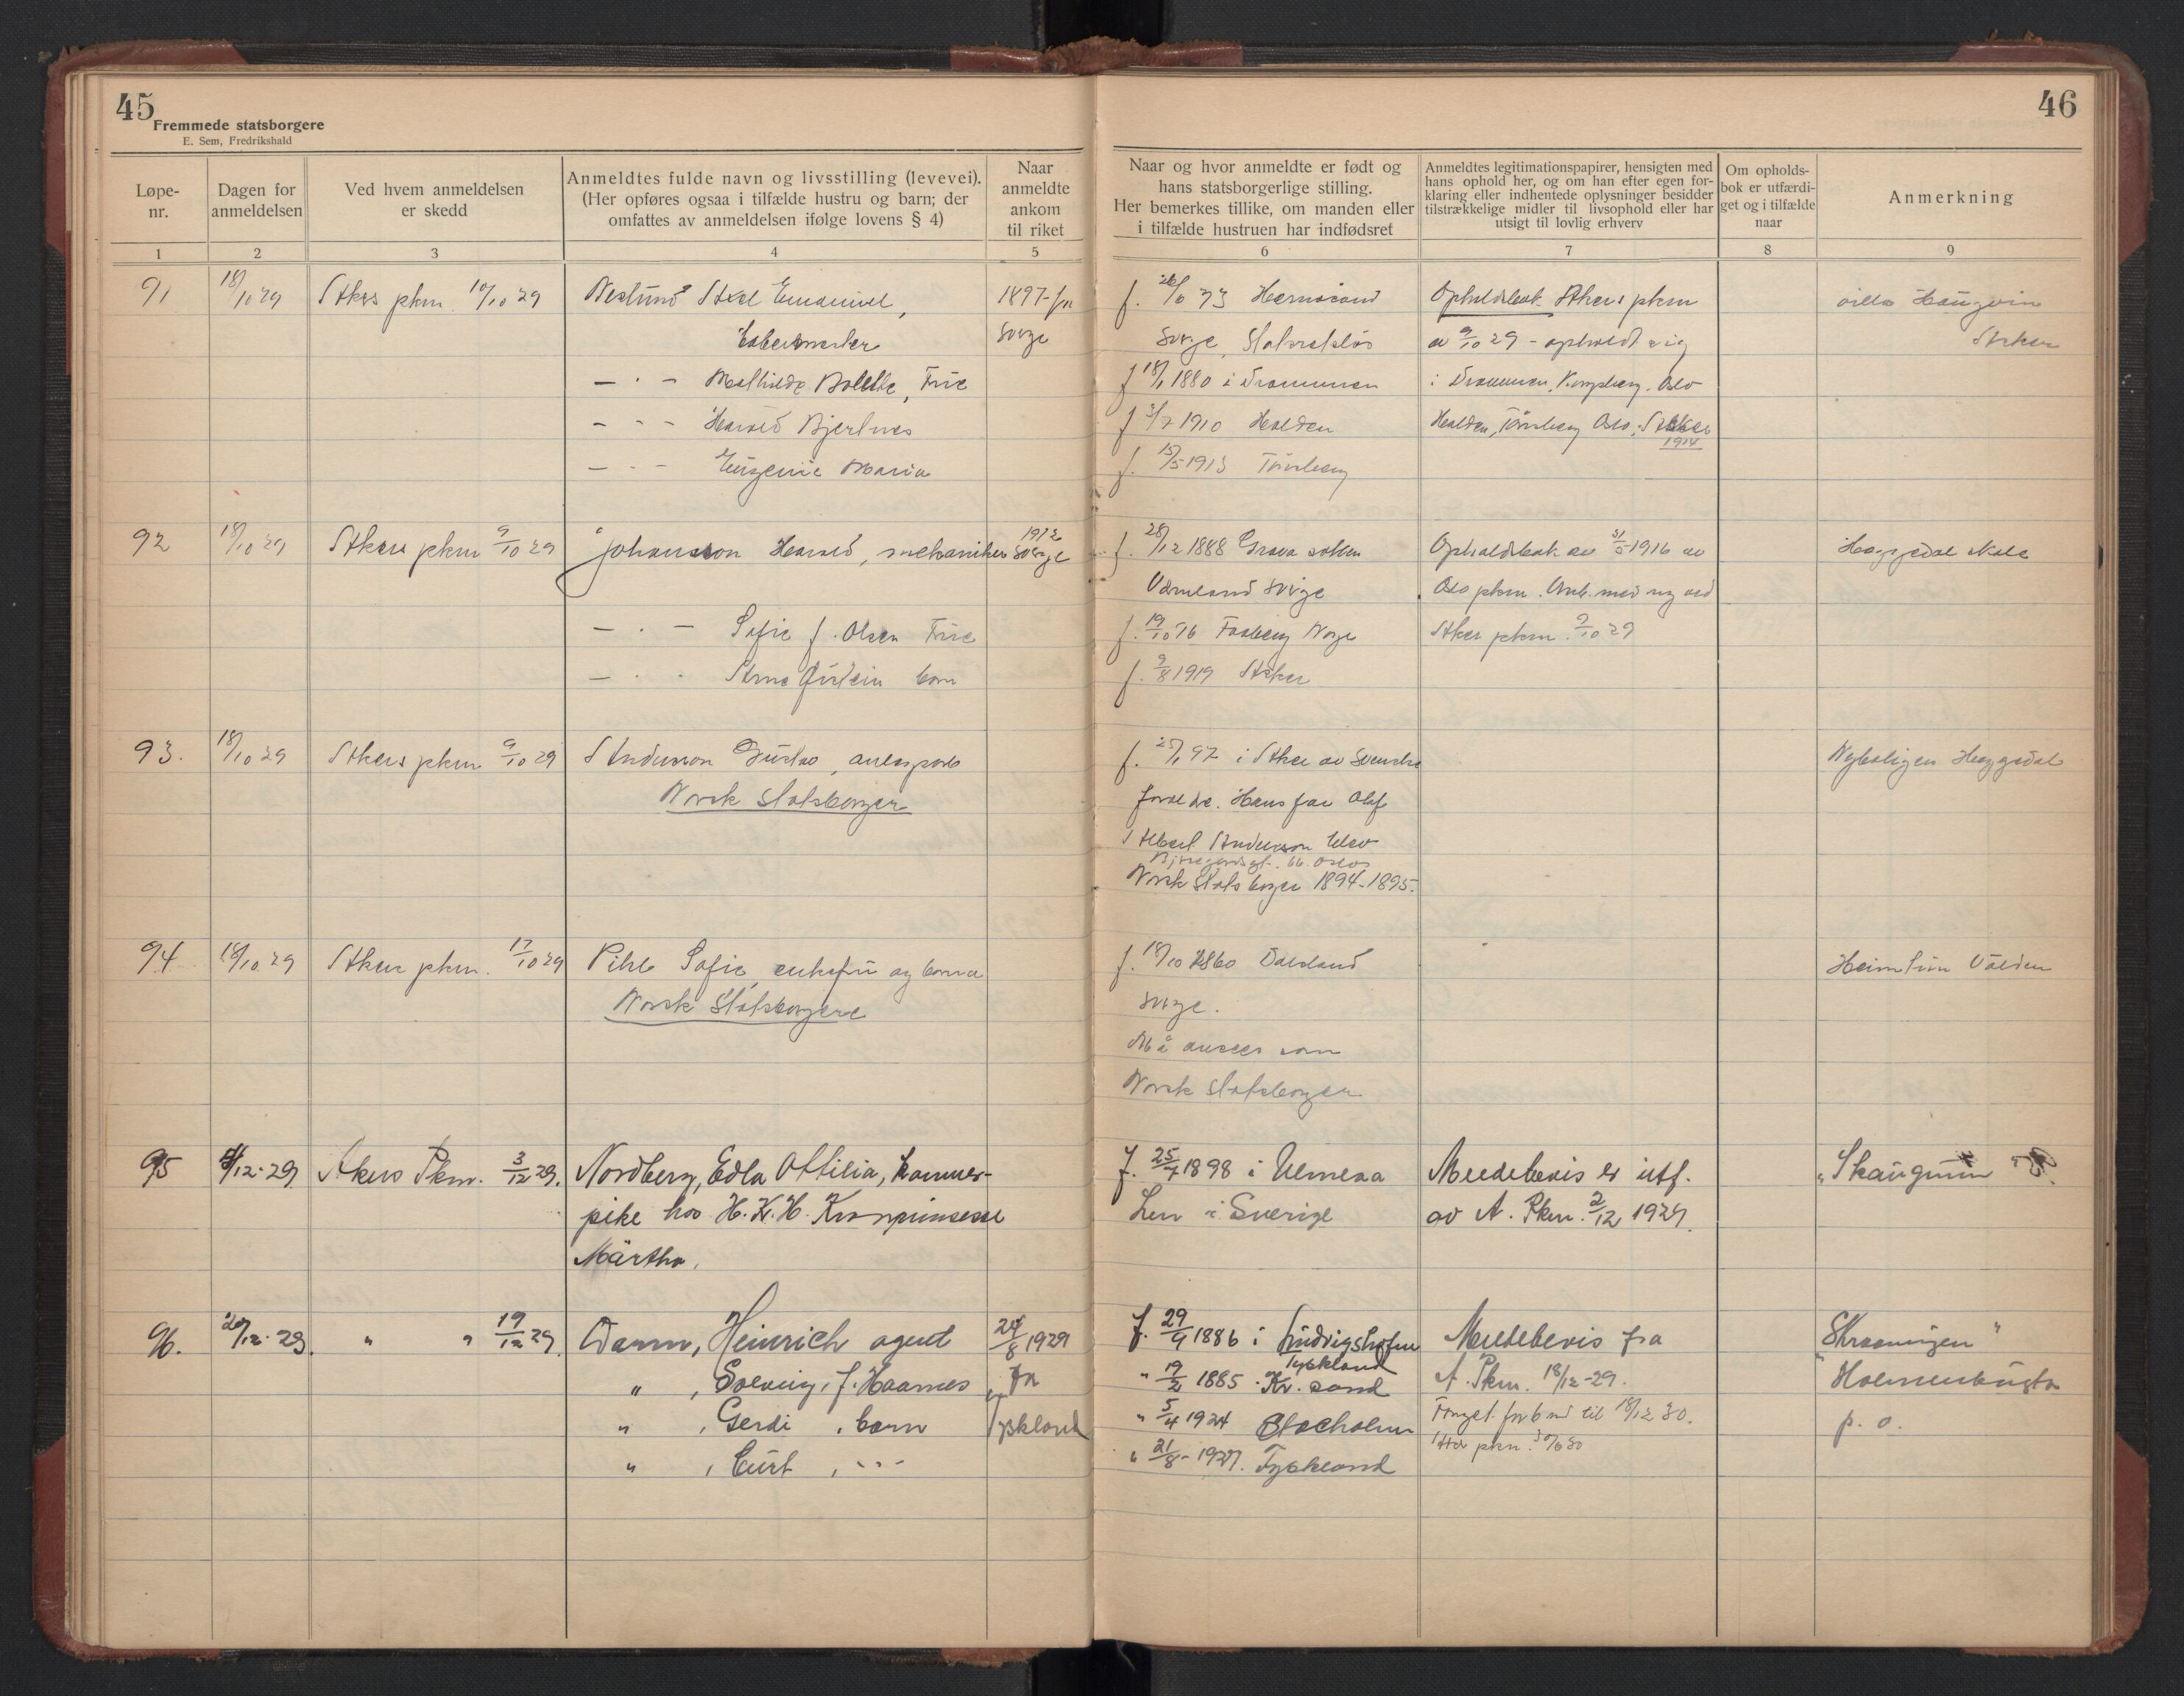 45
Fremmede statsborgere
E. Sem, Fredrikshald
Løpe-nr.
Dagen for anmeldelsen
Ved hvem anmeldelsen er skedd
Anmeldtes fulde navn og livsstilling (levevei).
(Her opføres ogsaa i tilfælde hustru og barn; der
omfattes av anmeldelsen ifølge lovens § 4)
Naar anmeldte ankom til riket
1 2 3 4 5
91 18/10 29 Akers pkm. 10/10 29 Axel Emanuel, 1897 fra
Sverge
— " — Mathilde Bolette, Frue
— " — Harald Bjertnes
— " — Eugenie Maria
92 18/10 29 Akers pkm 9/10 29 Johansson Harald, mechaniker 1912 Sverge
— " — Sofie f. Olsen Frue
— " — Arne Øistein barn
93. 18/10 29 Akers pkm 9/10 29 Anderson Gustav,
Norsk statsborger
94 18/10 29 Akers pkm. 17/10 29 Pihl Sofie, enkefru og barn
Norsk Statsborgere
95 4/12-29 Akers Pkm. 3/12 29. Nordberg, Edla Ottilia, kammer-
pike hos H. K. H. Kronprinsesse
Märtha.
96. 20/12-29. " " 19/12 29. Damm, Heinrich agent 24/8 1929
" , Solveig, f. Haarnes fra
" , Gerdi , barn Tyskland
" , Curt , - " -
46
Naar og hvor anmeldte er født og
hans statsborgerlige stilling.
Her bemerkes tillike, om manden eller
i tilfælde hustruen har indfødsret
Anmeldtes legitimationspapirer, hensigten med
hans ophold her, og om han efter egen for-
klaring eller indhentede oplysninger besidder
tilstrækkelige midler til livsophold eller har
utsigt til lovlig erhverv
Om opholds-
bok er utfærdi-
get og i tilfælde
naar
Anmerkning
6 7 8 9
Hernøsand Opholdsbok Akers pkm villa Haugvin
Sverge, Statsrekløs av 9/10 29 - opholdt sig Asker
f 18/1 1880 i Drammen i Drammen, Kongsberg, Oslo
f 3/7 1910 Halden Halden, Tønsberg Oslo, Asker
1914
f. 15/5 1913 Tønsberg
f. 28/12 1888 Grava sokken Opholdsbok av 31/5 1916 av Heggedal skole
Värmland Sverge Oslo pkm. Omb. med ny ved
f. 19/10 76 Fossberg Norge Akers pkm. 9/10 29
f. 9/8 1919 Asker
f. 25/1 97 i Asker av Svenske Nyboligen Heggedal
foreldre. Hans far Olaf
Albert Anderson blev
66. Oslo
Norsk Statsborger 1894-1895.
f. 18/10 1860 Dalsland Heimtun Valden
Sverge.
Må ansees som
Norsk statsborger
f. 25/4 1898 i Umeaa Meldebevis er utf. "Skaugum"
Len i Sverige av A. Pkm. 2/12 1929.
f. 29/9 1886 i Ludvigshafen Meldebevis fra
Tyskland
" 19/2 1885 Kr. sand A. Pkm. 18/12-29. Holmenbugta
" 5/4 1924 Stocholm Forlenget for 6 md til 18/12 30. p. o.
" 21/8-1927. Tyskland